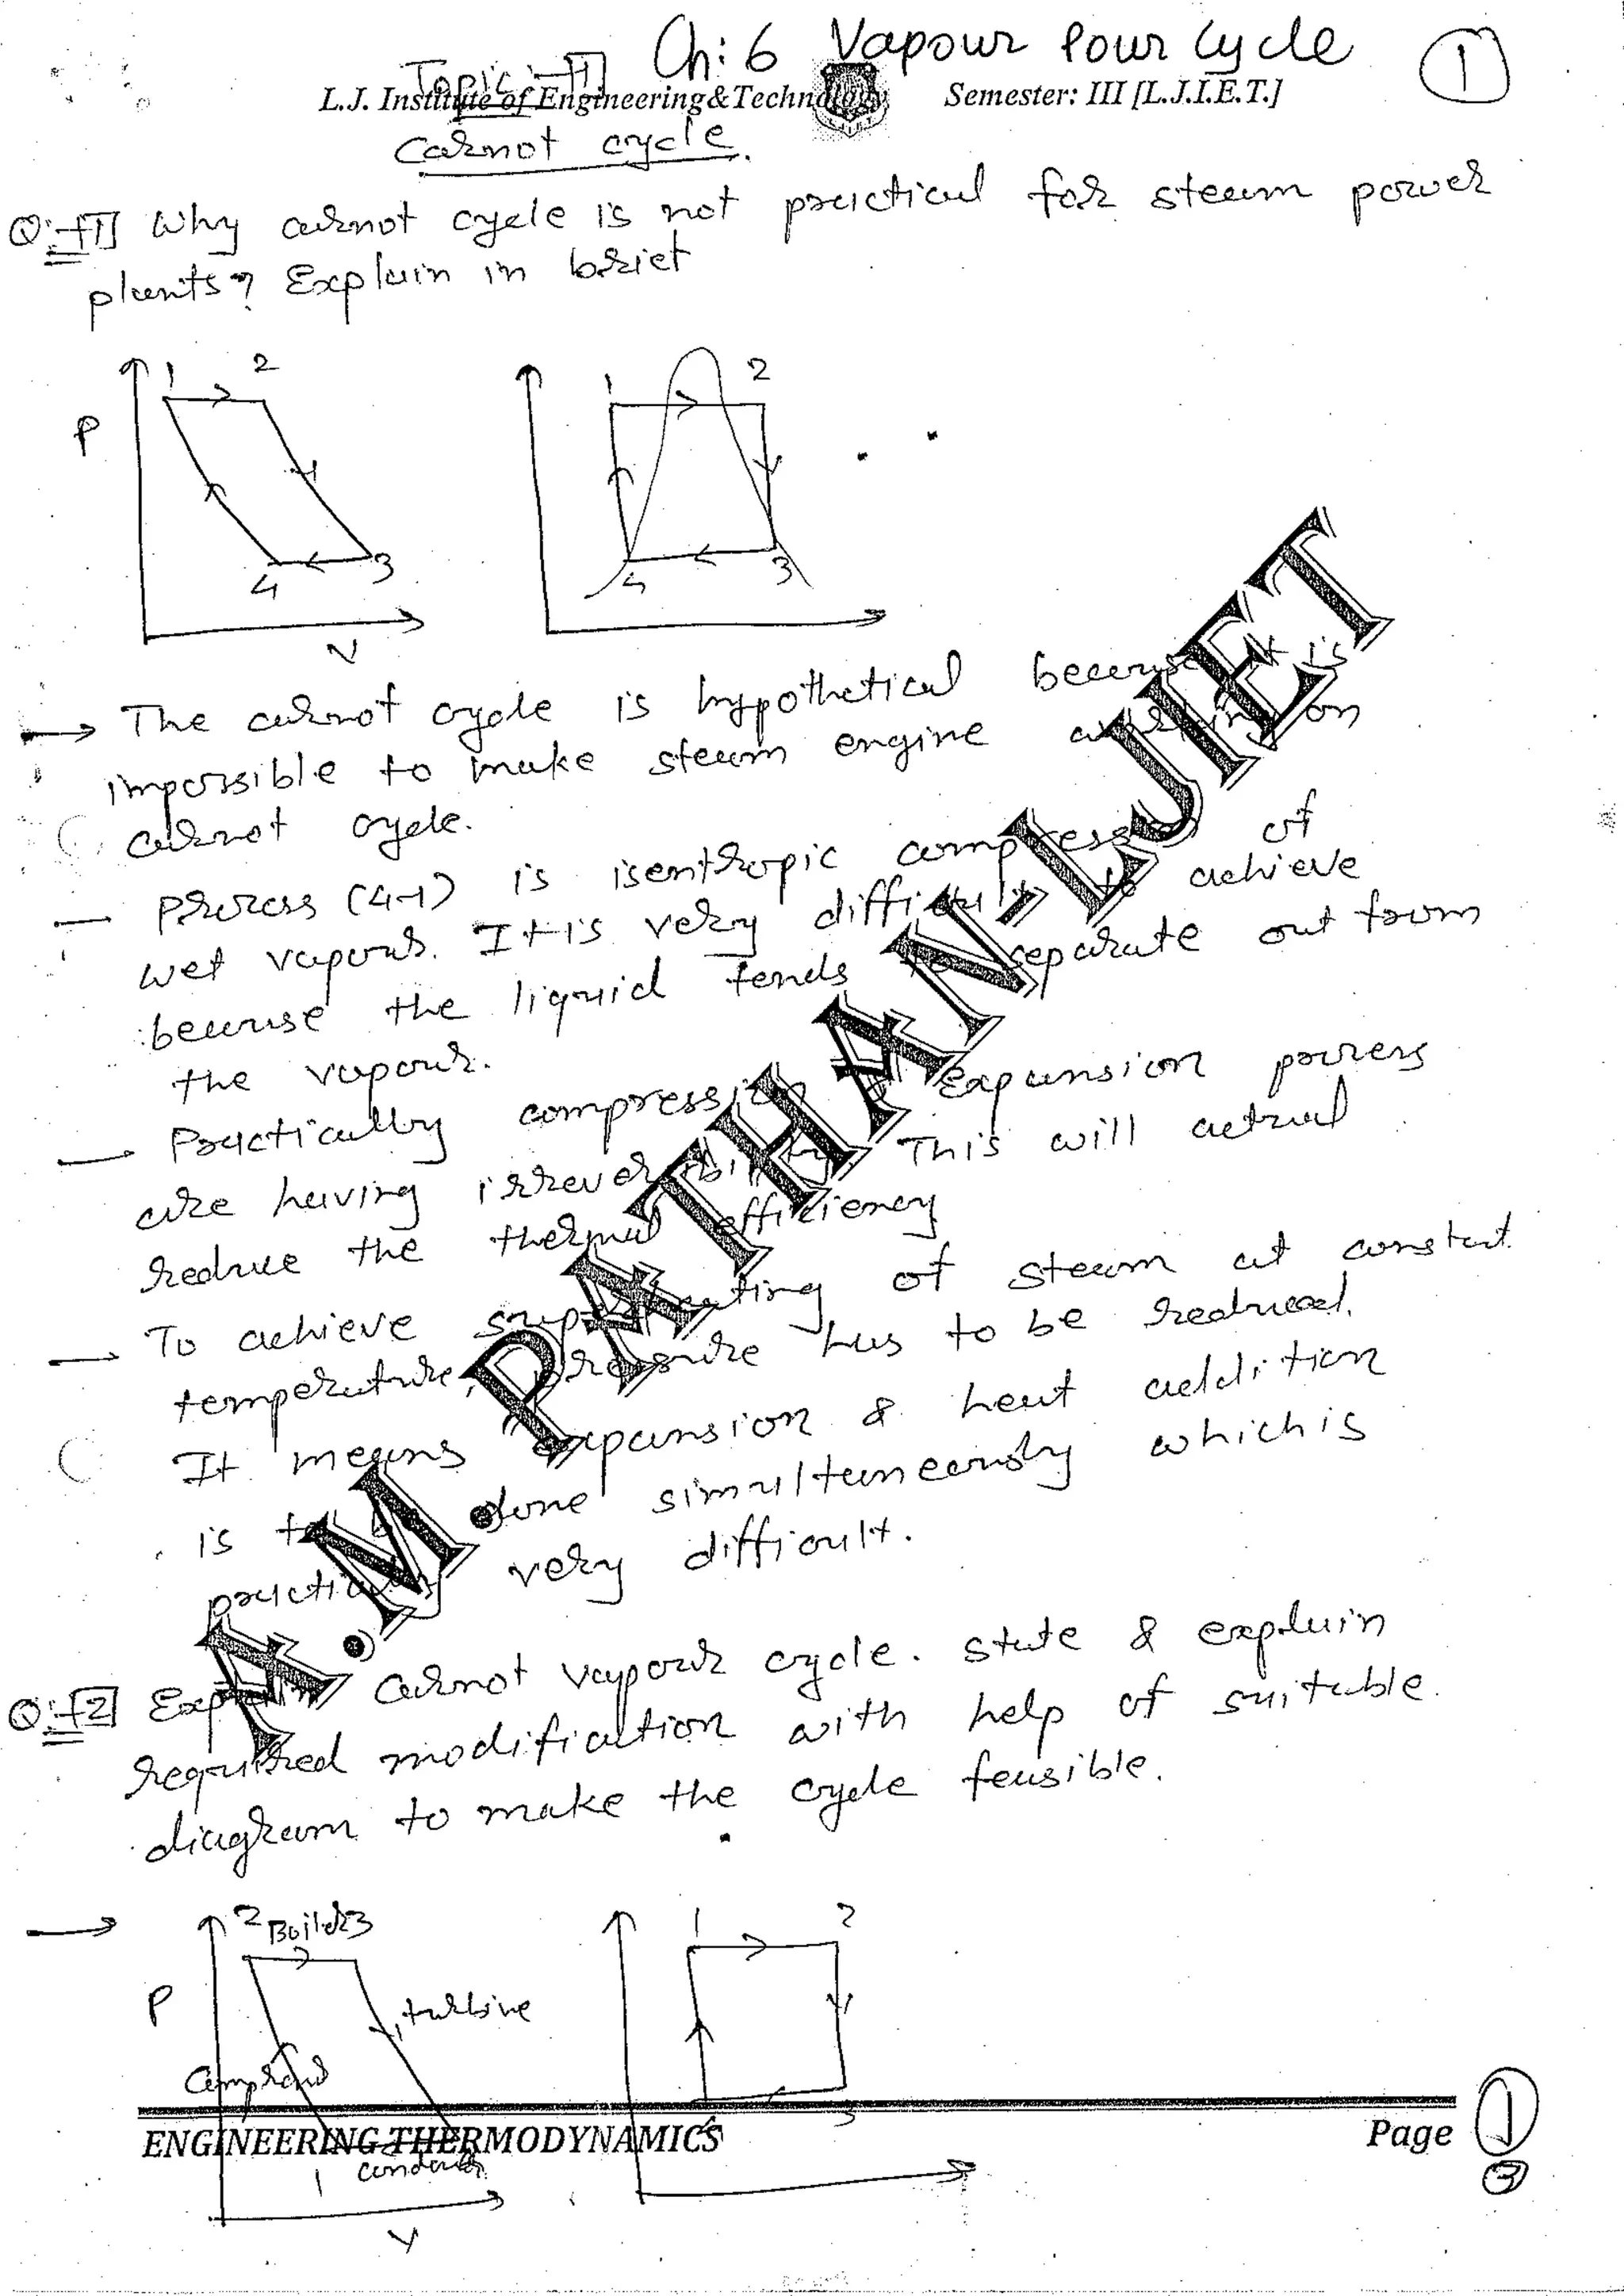 Ch: 6 Vapour Power Cycle
1
Topic:-1
L.J. Institute of Engineering&Technology Semester: III [L.J.I.E.T.]
Carnot cycle.
Q:-1 Why carnot cycle is not practical for steam power
plants? Explain in brief
1 2
P
4 3
V
1 2
4 3
→ The carnot cycle is hypothetical because it is
impossible to make steam engine on
carnot cycle.
— Process (4-1) is isentropic compression of
wet vapour. It is very difficult to achieve
because the liquid tends to separate out from
the vapour.
— Practically compression & Expansion process
are having irreversibility. This will actual
reduce the thermal efficiency
— To achieve superheating of steam at constant
temperature, pressure has to be reduced.
It means expansion & heat addition
is to be done simultaneously which is
practically very difficult.
Q:-2 Explain Carnot vapour cycle. State & explain
required modification with help of suitable
diagram to make the cycle feasible.
→
2 Boiler 3
P
turbine
1
V
1 2
3
A.M. PATHAN-LJIET
ENGINEERING THERMODYNAMICS Page 1
3